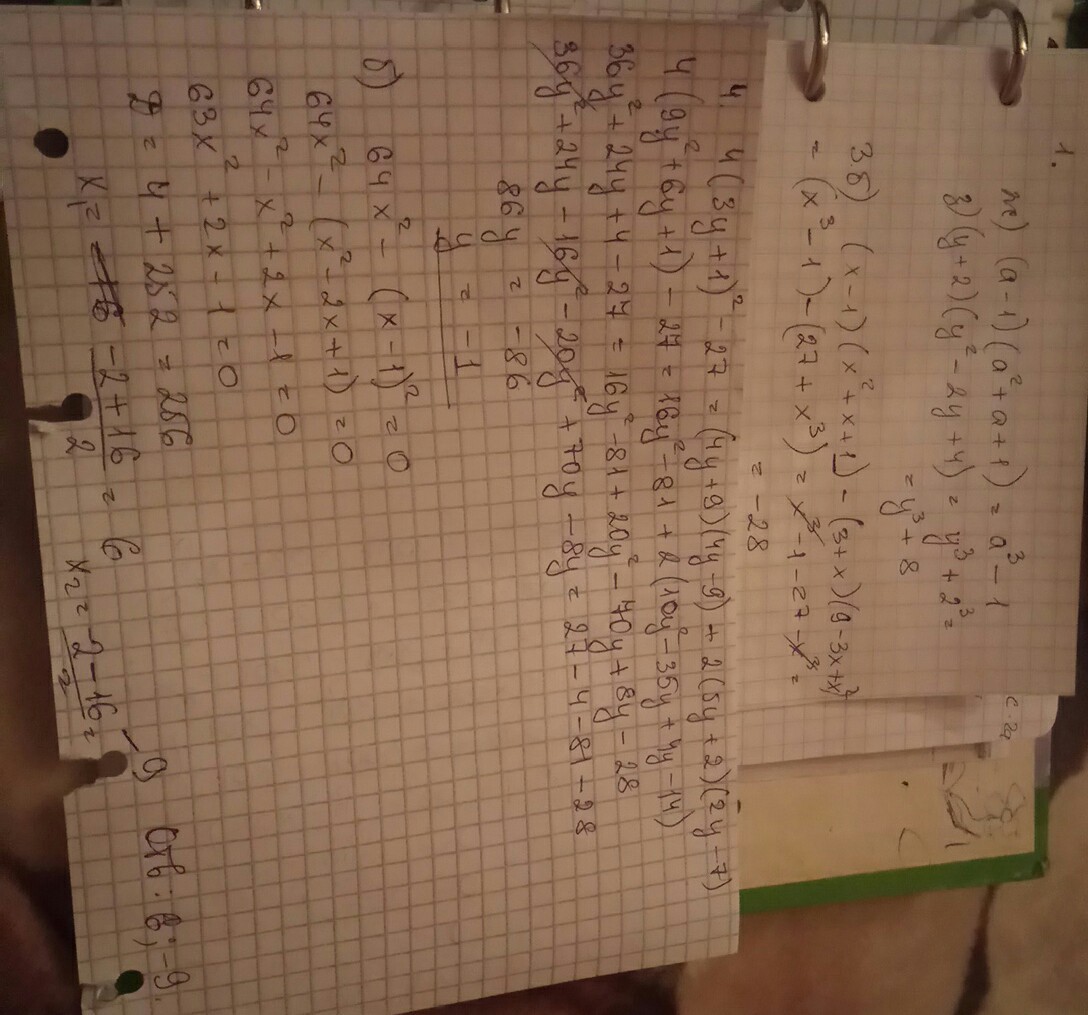 1.
ж) (a-1)(a²+a+1) = a³-1
з) (y+2)(y²-2y+4) = y³+2³=
= y³+8
3б) (x-1)(x²+x+1) - (3+x)(9-3x+x²)
= (x³-1)-(27+x³) = x³-1-27-x³ =
= -28
4. 4(3y+1)²-27 = (4y+9)(4y-9)+2(5y+2)(2y-7)
4(9y²+6y+1)-27 = 16y²-81+2(10y²-35y+4y-14)
36y²+24y+4-27 = 16y²-81+20y²-70y+8y-28
36y²+24y-16y²-20y²+70y-8y = 27-4-81-28
86y = -86
y = -1
б) 64x²-(x-1)² = 0
64x²-(x²-2x+1) = 0
64x²-x²+2x-1 = 0
63x²+2x-1 = 0
D = 4+252 = 256
x₁ = (-2+16)/2 = 6 x₂ = (-2-16)/2 = -9 Отв: 6; -9.